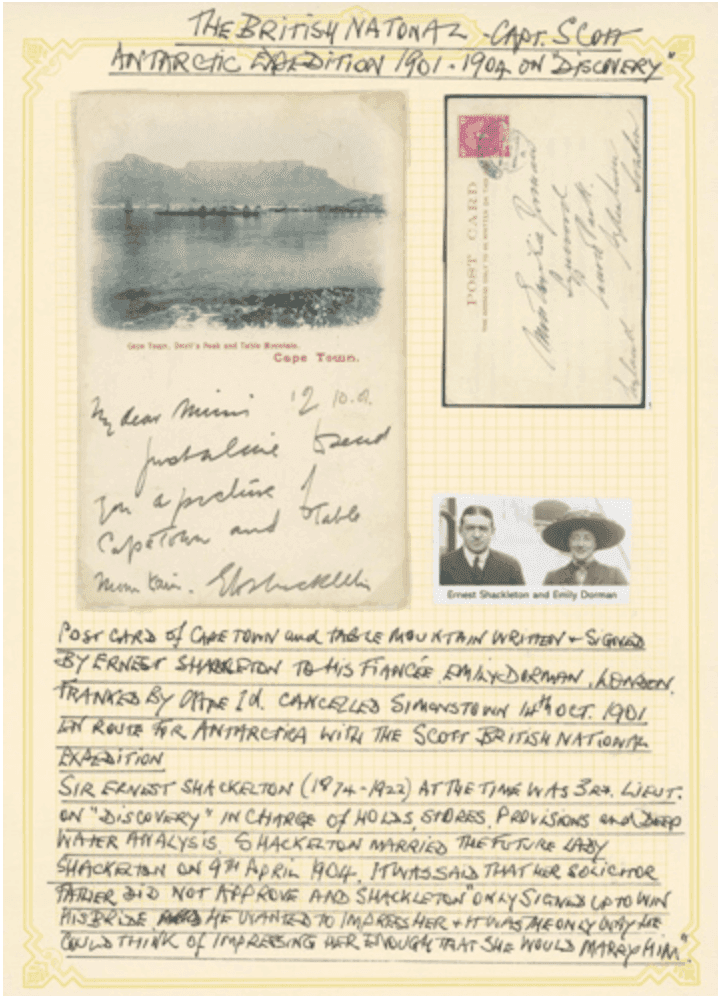 THE BRITISH NATONAL - CAPT. SCOTT
ANTARCTIC EXPEDITION 1901 - 1904 ON "DISCOVERY"
Cape Town, Devil's Peak and Table Mountain.
Cape Town.
My dear Mimi 12 10.01.
Just a line to send
you a picture of
Capetown and Table
Mountain. EHShackleton
POST CARD
THE ADDRESS ONLY TO BE WRITTEN ON THIS
Miss Dorman
London
England
Ernest Shackleton and Emily Dorman
POST CARD of CAPE TOWN and TABLE MOUNTAIN WRITTEN + SIGNED
BY ERNEST SHACKLETON TO HIS FIANCÉE EMILY DORMAN, LONDON.
FRANKED BY CAPE 1d. CANCELLED SIMONSTOWN 14th OCT. 1901
EN ROUTE FOR ANTARCTICA WITH THE SCOTT BRITISH NATIONAL
EXPEDITION
SIR ERNEST SHACKELTON (1874-1922) AT THE TIME WAS 3RD. LIEUT.
ON "DISCOVERY" IN CHARGE of HOLDS, STORES, PROVISIONS and DEEP
WATER ANALYSIS. SHACKELTON MARRIED THE FUTURE LADY
SHACKELTON ON 9TH APRIL 1904. IT WAS SAID THAT HER SOLICITOR
FATHER DID NOT APPROVE AND SHACKLETON "ONLY SIGNED UP TO WIN
HIS BRIDE HE WANTED TO IMPRESS HER + IT WAS THE ONLY WAY HE
COULD THINK OF IMPRESSING HER ENOUGH THAT SHE WOULD MARRY HIM".